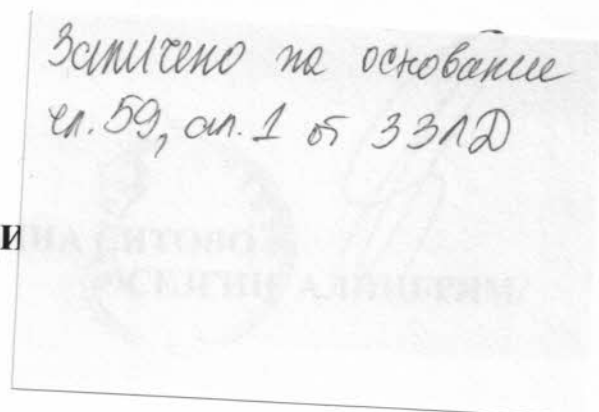 Заличено на основание
чл. 59, ал. 1 от ЗЗЛД
И